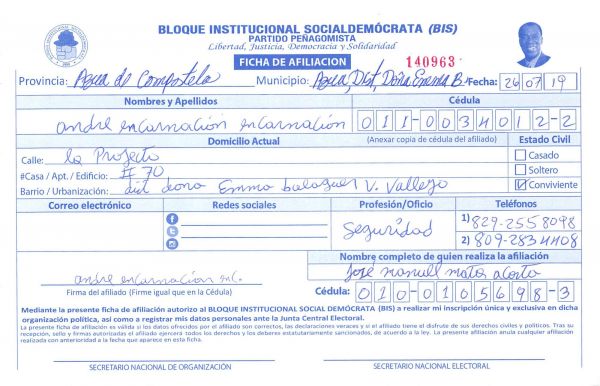 BLOQUE INSTITUCIONAL SOCIALDEMÓCRATA (BIS)
PARTIDO PEÑAGOMISTA
Libertad, Justicia, Democracia y Solidaridad
FICHA DE AFILIACION
140963
Provincia: Azua de Compostela Municipio: Azua, Dist, Doña Emma B. Fecha: 26 07 19
Nombres y Apellidos Cédula
andre encarnación encarnación 011-0034012-2
Domicilio Actual (Anexar copia de cédula del afiliado) Estado Civil
Calle: la Projecto Casado
#Casa / Apt. / Edificio: # 70 Soltero
Barrio / Urbanización: dit dona Emma balaguer V. Vallejo Conviviente
Correo electrónico Redes sociales Profesión/Oficio Teléfonos
Seguridad
1) 829-2558098
2) 809-2834408
Nombre completo de quien realiza la afiliación
andre encarnación enc. José manuell mata acosta
Firma del afiliado (Firme igual que en la Cédula) Cédula: 010-0105698-3
Mediante la presente ficha de afiliación autorizo al BLOQUE INSTITUCIONAL SOCIAL DEMÓCRATA (BIS) a realizar mi inscripción única y exclusiva en dicha
organización política, así como a registrar mis datos personales ante la Junta Central Electoral.
La presente ficha de afiliación es válida si los datos ofrecidos por el afiliado son correctos, las declaraciones veraces y si el afiliado tiene el disfrute de sus derechos civiles y políticos. Tras su
recepción, sello y firmas autorizadas el afiliado ejercerá todos los derechos y los deberes estatutariamente sancionados, de acuerdo a la ley. La presente afiliación anula cualquier afiliación
realizada con anterioridad a la fecha que aparece en esta ficha.
SECRETARIO NACIONAL DE ORGANIZACIÓN SECRETARIO NACIONAL ELECTORAL